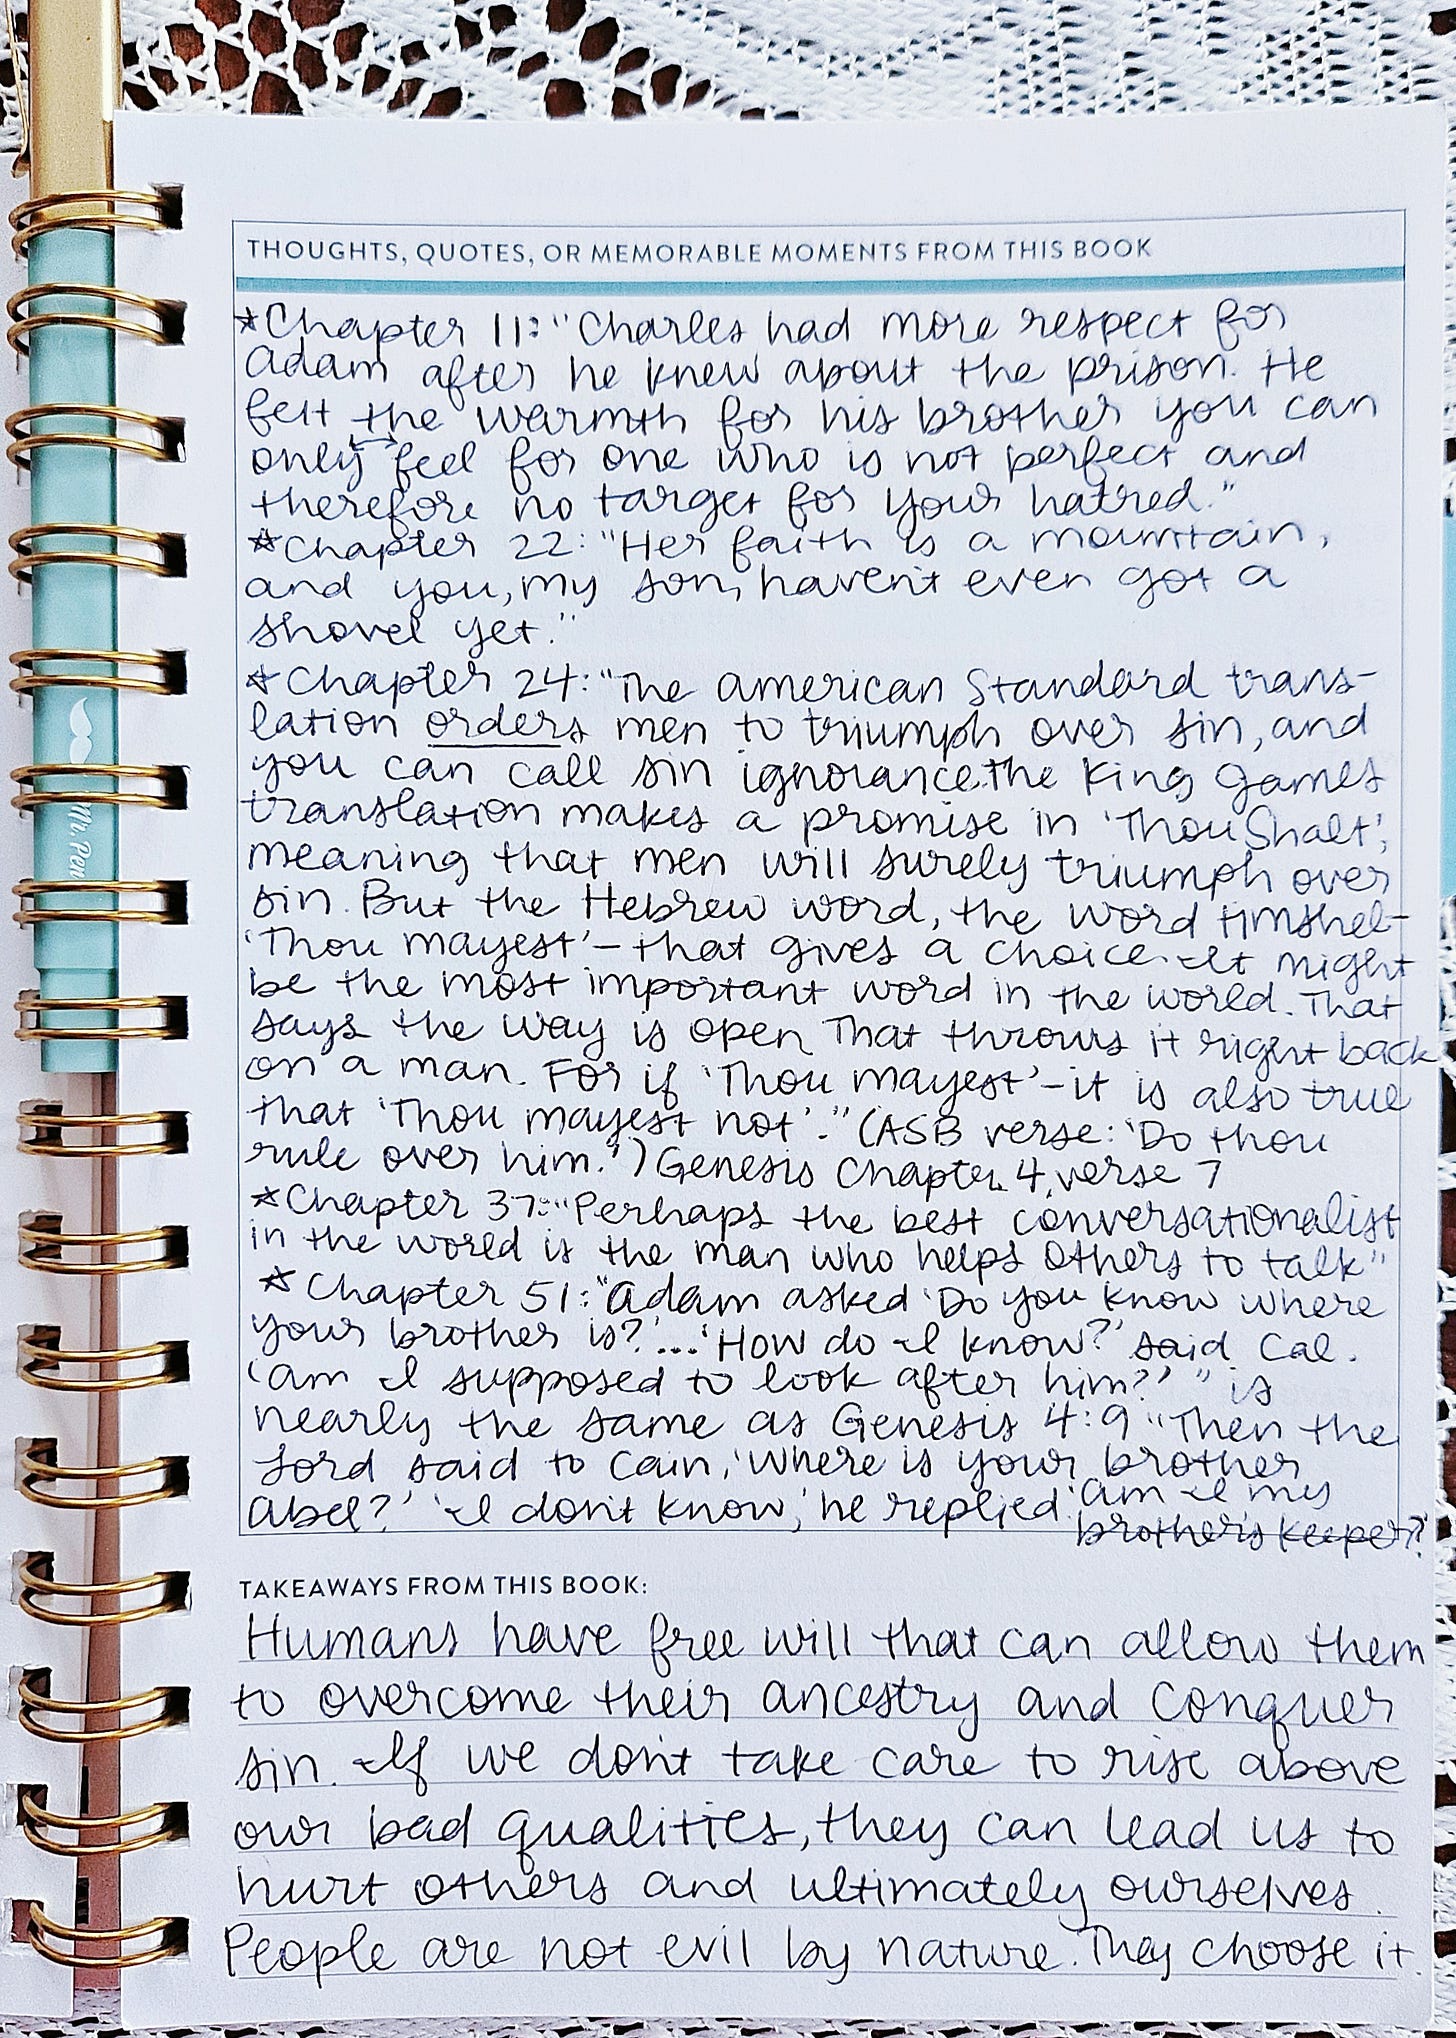 THOUGHTS, QUOTES, OR MEMORABLE MOMENTS FROM THIS BOOK
*Chapter 11: "Charles had more respect for
Adam after he knew about the prison. He
felt the warmth for his brother you can
only feel for one who is not perfect and
therefore no target for your hatred."
*Chapter 22: "Her faith is a mountain,
and you, my son, haven't even got a
shovel yet."
*Chapter 24: "The American Standard trans-
lation orders men to triumph over sin, and
you can call sin ignorance. The King James
translation makes a promise in 'Thou Shalt',
meaning that men will surely triumph over
sin. But the Hebrew word, the word timshel-
'Thou mayest'-that gives a choice. It might
be the most important word in the world. That
says the way is open. That throws it right back
on a man. For if 'Thou mayest'-it is also true
that 'Thou mayest not'." (ASB verse: 'Do thou
rule over him.') Genesis Chapter 4, verse 7
*Chapter 37: "Perhaps the best conversationalist
in the world is the man who helps others to talk"
*Chapter 51: "Adam asked 'Do you know where
your brother is?'... 'How do I know?' said Cal.
'Am I supposed to look after him?' " is
nearly the same as Genesis 4:9 "Then the
Lord said to Cain, 'Where is your brother
Abel?' 'I don't know,' he replied. 'Am I my
brother's keeper?'
TAKEAWAYS FROM THIS BOOK:
Humans have free will that can allow them
to overcome their ancestry and conquer
sin. If we don't take care to rise above
our bad qualities, they can lead us to
hurt others and ultimately ourselves.
People are not evil by nature. They choose it.
Mr. Pen